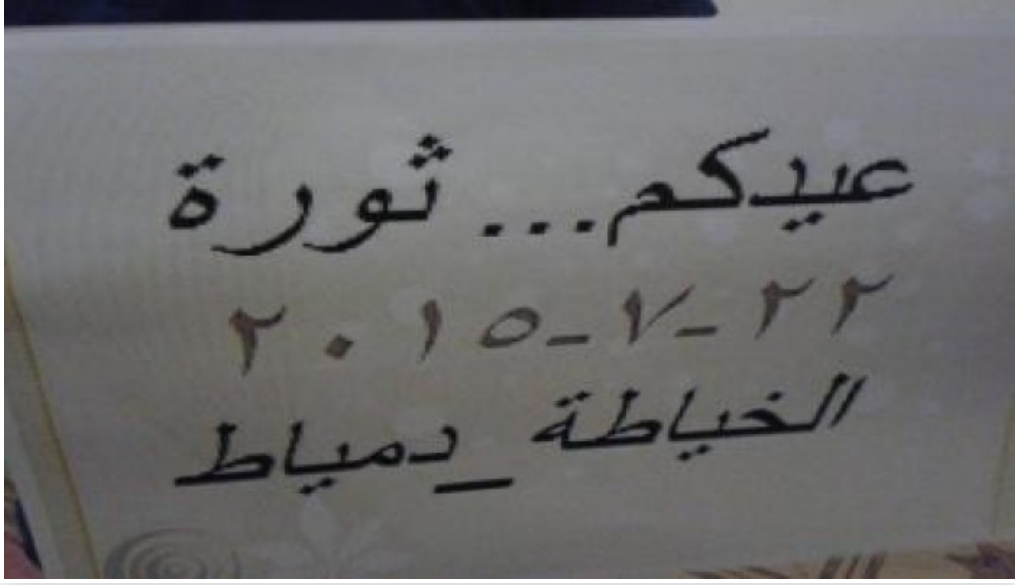 عيدكم... ثورة
٢٢-٧-٢٠١٥
الخياطة_دمياط